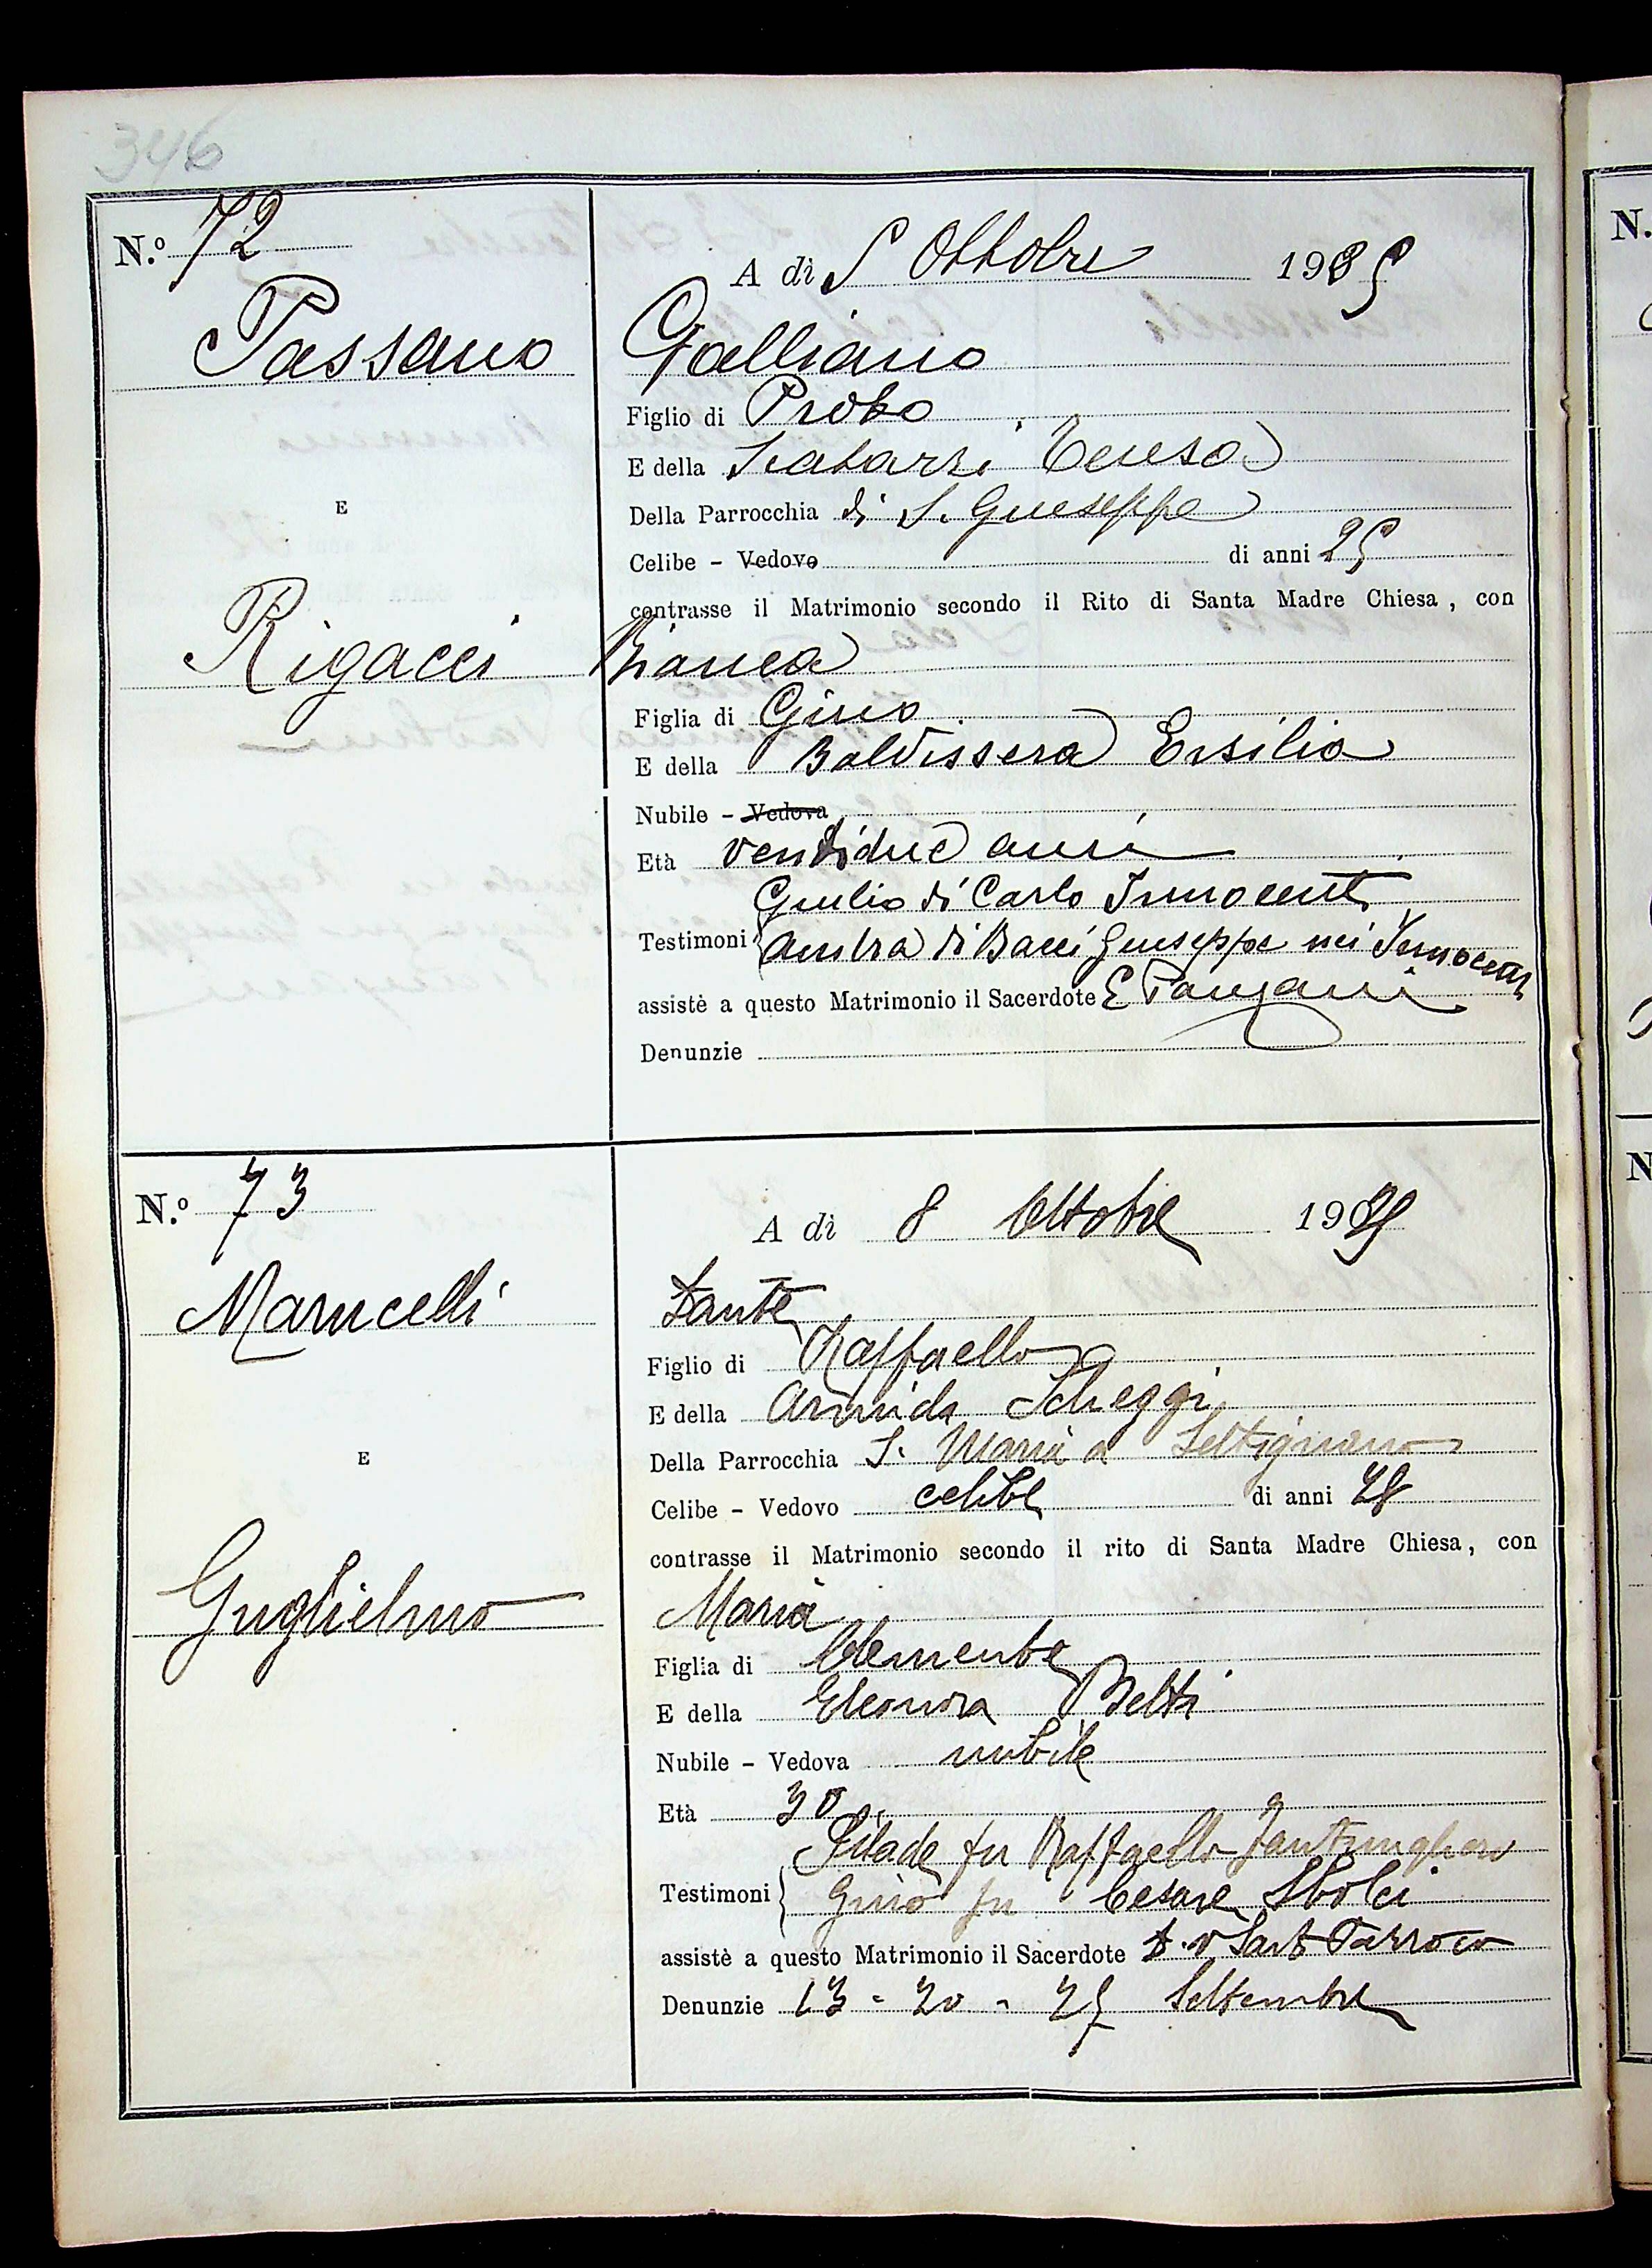 346
N.º 72
A dì 5 Ottobre 1925
Passano
Galliano
Figlio di Probo
E della Scatarzi Teresa
Della Parrocchia di S. Giuseppe
E
Celibe - Vedovo di anni 25
contrasse il Matrimonio secondo il Rito di Santa Madre Chiesa, con
Rigacci
Bianca
Figlia di Gino
E della Baldissera Ersilia
Nubile - Vedova
Età ventidue anni
Giulio di Carlo Innocenti
Testimoni di Bacci Giuseppe nei Innocenti
assistè a questo Matrimonio il Sacerdote E
Denunzie
N.º 73
A dì 8 Ottobre 1925
Marucelli
Dante
Figlio di Raffaello
E della Armida Scheggi
Della Parrocchia S. Maria a Settignano
E
Celibe - Vedovo celibe di anni 28
contrasse il Matrimonio secondo il rito di Santa Madre Chiesa, con
Guglielmo
Maria
Figlia di Clemente
E della Eleonora Betti
Nubile - Vedova nubile
Età 30
Pilade fu Raffaello
Testimoni Gino fu Cesare Sbolci
assistè a questo Matrimonio il Sacerdote Parroco
Denunzie 13 - 20 - 25 Settembre
N.
N